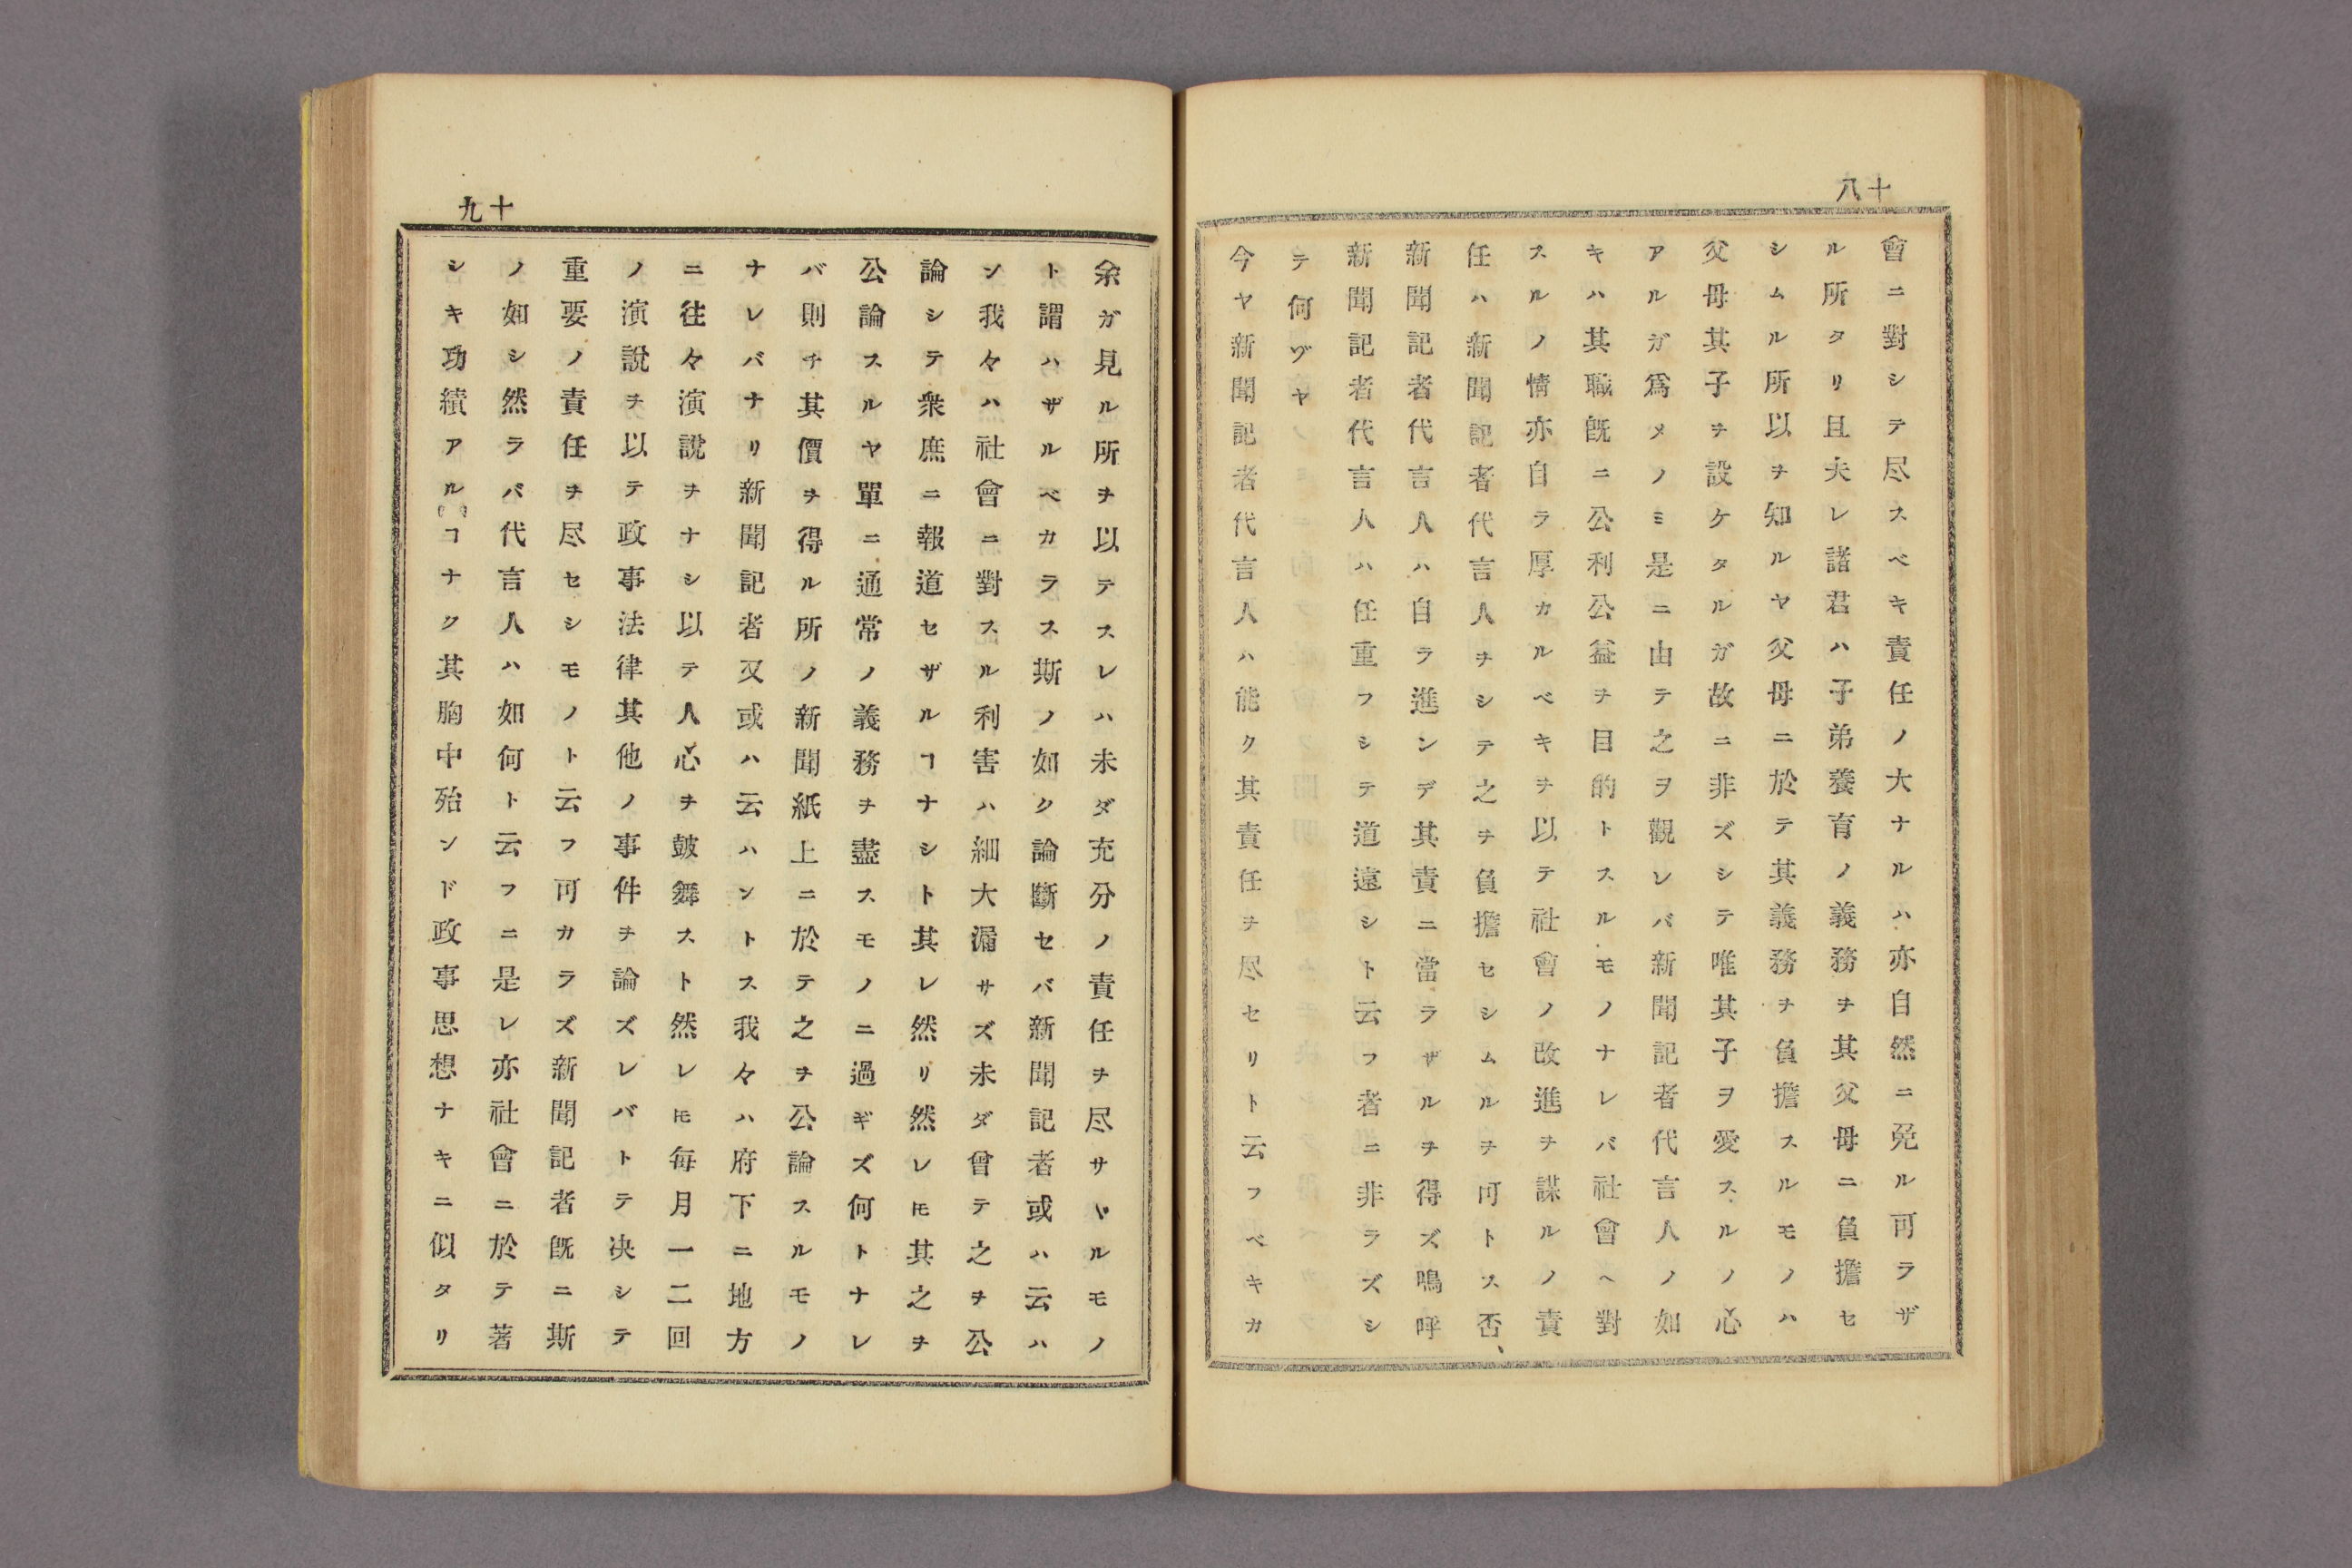 十八
會ニ對シテ尽スベキ責任ノ大ナルハ亦自然ニ免ル可ラザ
ル所タリ且夫レ諸君ハ子弟養育ノ義務ヲ其父母ニ負擔セ
シムル所以ヲ知ルヤ父母ニ於テ其義務ヲ負擔スルモノハ
父母其子ヲ設ケタルガ故ニ非ズシテ唯其子ヲ愛スルノ心
アルガ爲メノミ是ニ由テ之ヲ觀レバ新聞記者代言人ノ如
キハ其職既ニ公利公益ヲ目的トスルモノナレバ社會ヘ對
スルノ情亦自ラ厚カルベキヲ以テ社會ノ改進ヲ謀ルノ責
任ハ新聞記者代言人ヲシテ之ヲ負擔セシムルヲ可トス否、
新聞記者代言人ハ自ラ進ンデ其責ニ當ラザルヲ得ズ鳴呼
新聞記者代言人ハ任重フシテ道遠シト云フ者ニ非ラズシ
テ何ヅヤ
今ヤ新聞記者代言人ハ能ク其責任ヲ尽セリト云フベキカ
十九
余ガ見ル所ヲ以テスレハ未ダ充分ノ責任ヲ尽サヾルモノ
ト謂ハザルベカラス斯ノ如ク論斷セバ新聞記者或ハ云ハ
ン我々ハ社會ニ對スル利害ハ細大漏サズ未ダ曾テ之ヲ公
論シテ衆庶ニ報道セザルヿナシト其レ然リ然レ𪜈其之ヲ
公論スルヤ單ニ通常ノ義務ヲ盡スモノニ過ギズ何トナレ
バ則チ其價ヲ得ル所ノ新聞紙上ニ於テ之ヲ公論スルモノ
ナレバナリ新聞記者又或ハ云ハントス我々ハ府下ニ地方
ニ往々演說ヲナシ以テ人心ヲ皷舞スト然レ𪜈每月一二回
ノ演說ヲ以テ政事法律其他ノ事件ヲ論ズレバトテ决シテ
重要ノ責任ヲ尽セシモノト云フ可カラズ新聞記者既ニ斯
ノ如シ然ラバ代言人ハ如何ト云フニ是レ亦社會ニ於テ著
シキ功績アルヿナク其胸中殆ンド政事思想ナキニ似タリ